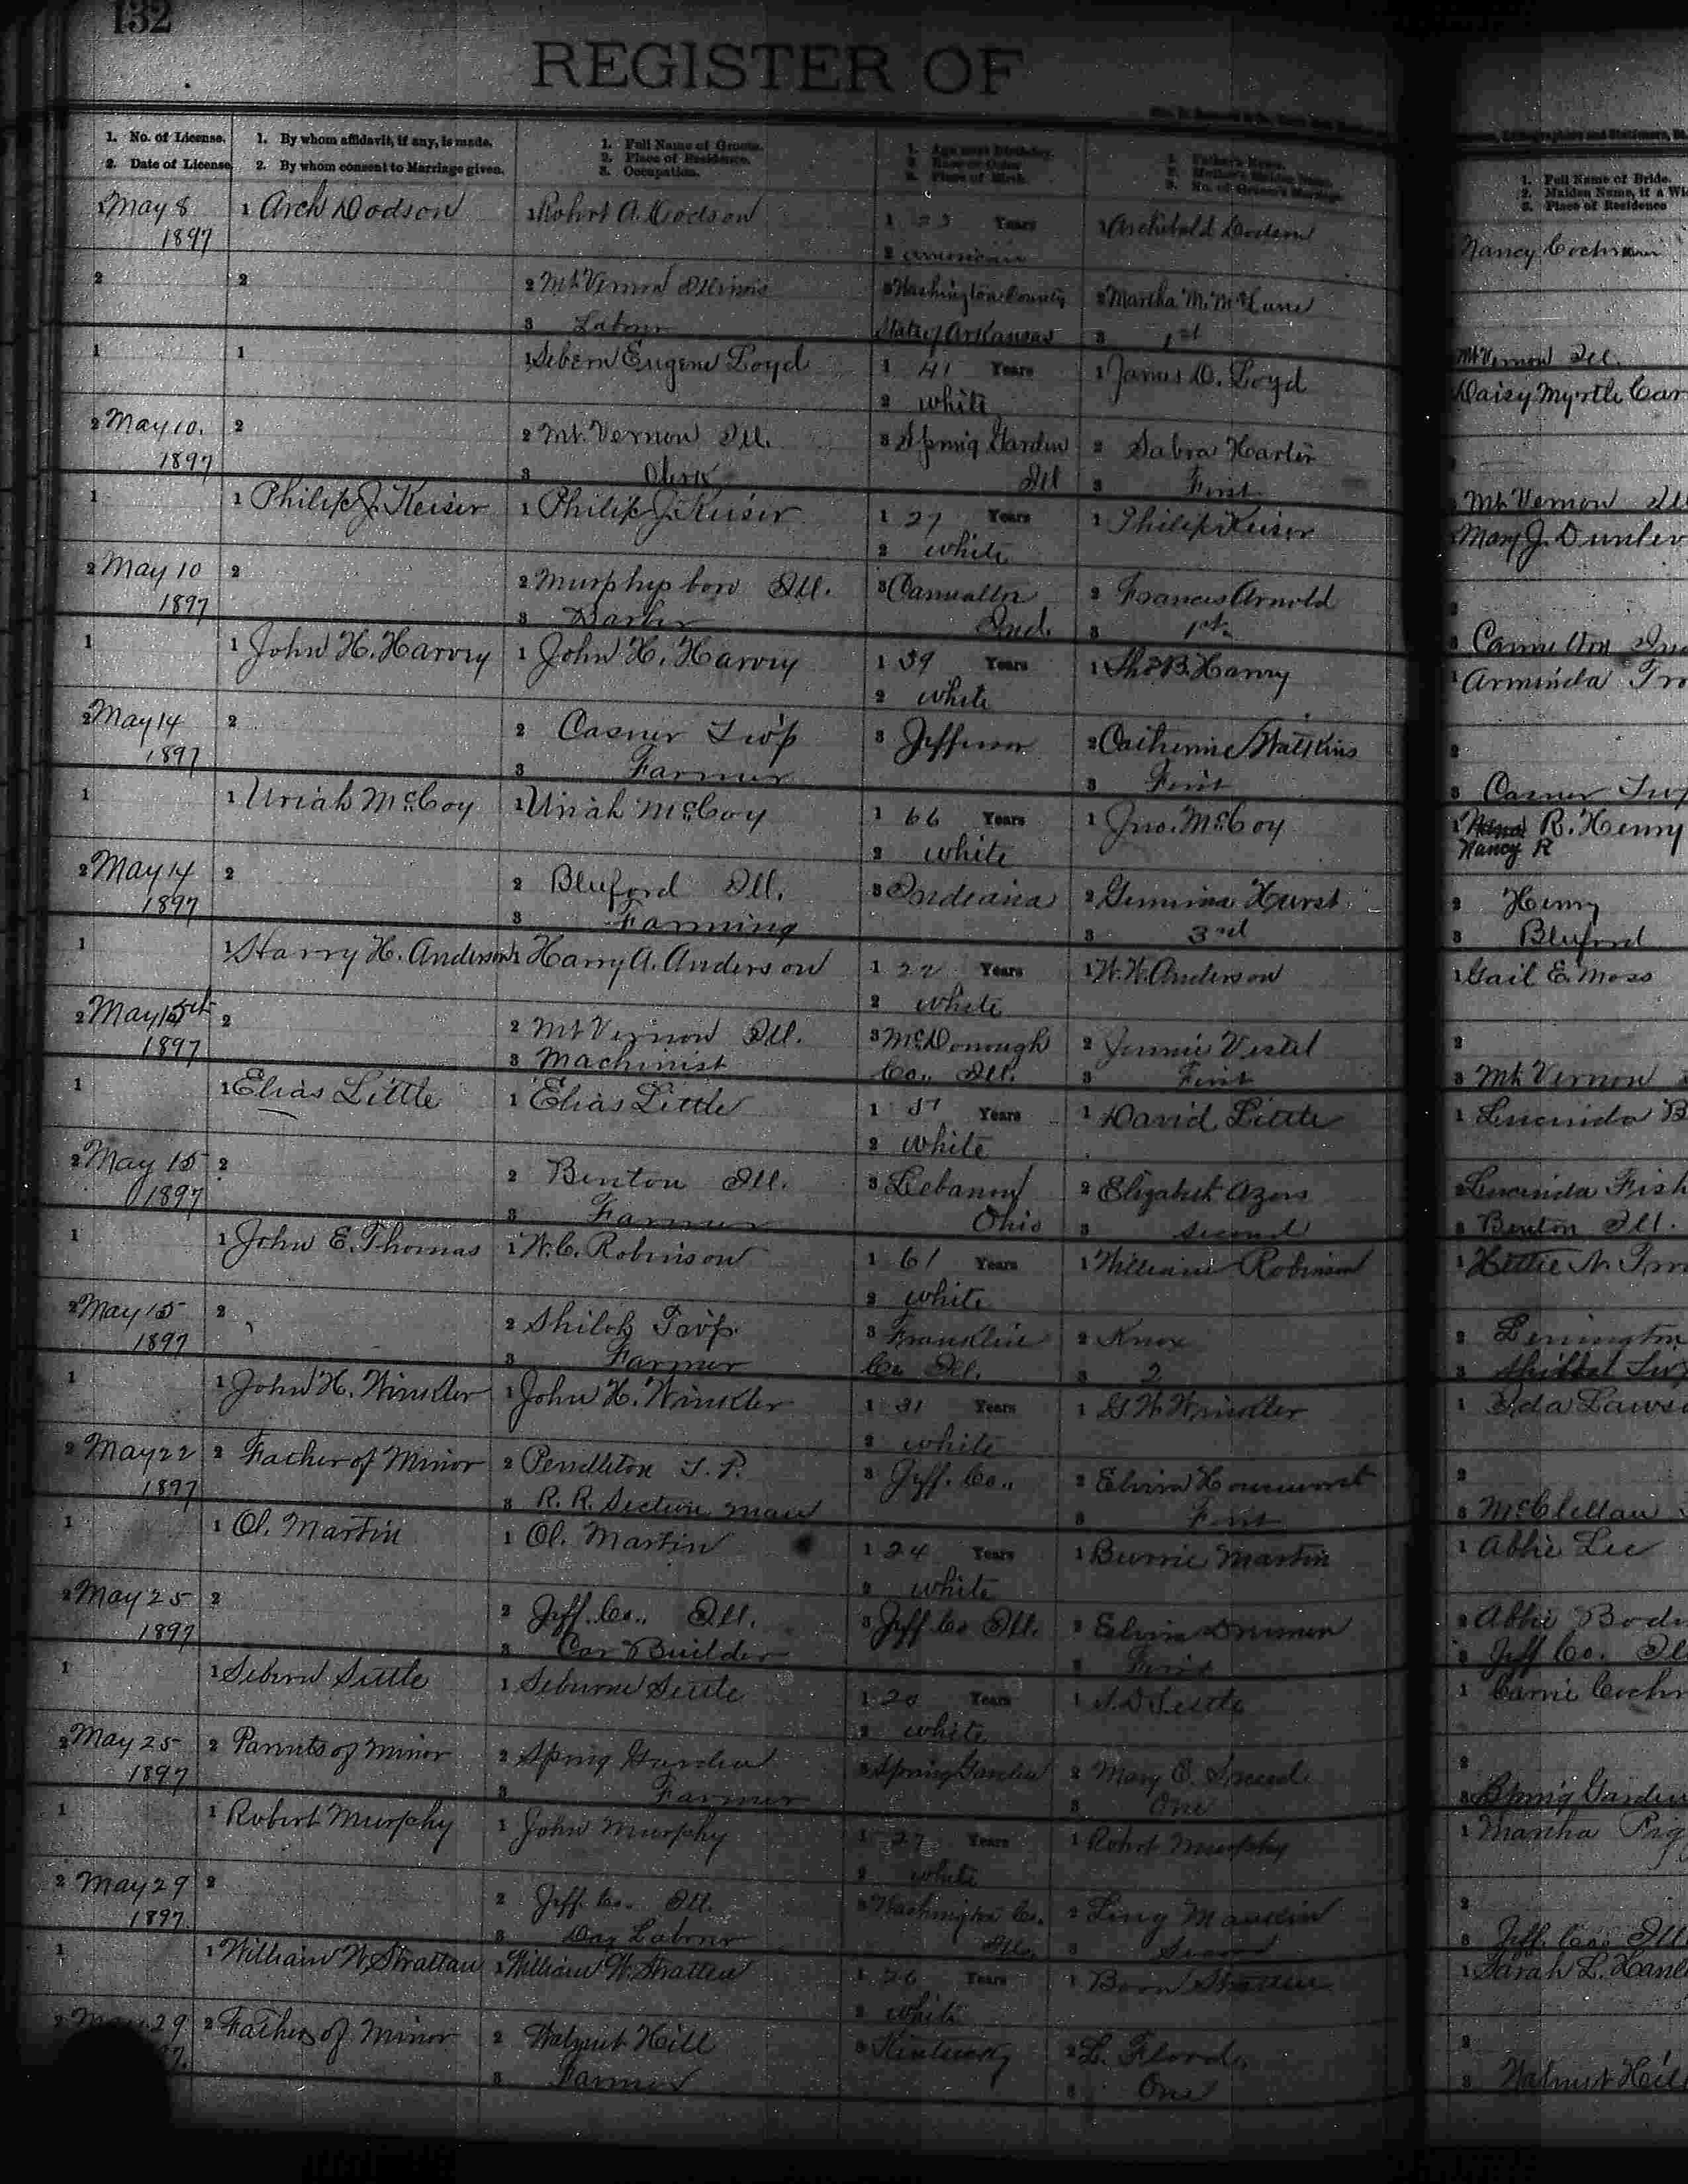 132
REGISTER OF
1. No. of License.
2. Date of License.
1. By whom affidavit, if any, is made.
2. By whom consent to Marriage given.
1. Full Name of Groom.
2. Place of Residence.
3. Occupation.
1. Age next Birthday.
2. Race or Color
3. Place of Birth.
1. Father's Name.
2. Mother's Maiden Name.
3. No. of Groom's Marriage.
1. Full Name of Bride.
2. Maiden Name, if a Wi
3. Place of Residence
1 May 8 1897
1 Arch Dodson
1 Robrt A. Dodson
1 23 Years
2 American
1 Archibald Dodson
Nancy Cochran
2
2
2 Mt Vernon Illinois
3 Labour
3 Washington County
State of Arkansas
2 Martha M.
3 1st
Mt Vernon Ill.
1
1
1 Sebern Eugene Loyd
1 41 Years
2 white
1 James D. Loyd
Daisy Myrtle Car
2 May 10. 1897
2
2 Mt. Vernon Ill.
3 Clerk
3 Spring Garden
Ill
2 Sabra Harlin
3 First
Mt Vernon Ill
1
1 Philip J. Keiser
1 Philip J. Keiser
1 27 Years
2 white
1 Philip Keiser
Mary J. Dunlev
2 May 10 1897
2
2 Murphysboro Ill.
3 Barber
3 Cannelton
Ind.
2 Frances Arnold
3 1st
3 Cannelton Ind
1
1 John H. Harvey
1 John H. Harvey
1 39 Years
2 white
1 Thos B. Harvey
1 Arminda Tro
2 May 14 1897
2
2 Casner Twp
3 Farmer
3 Jefferson
2 Catherine Watkins
3 First
3 Casner Twp
1
1 Uriah McCoy
1 Uriah McCoy
1 66 Years
2 white
1 Jno. McCoy
1 R. Henry
Nancy R
2 May 14 1897
2
2 Bluford Ill.
3 Farming
3 Indeana
2 Gemima Hurst
3 3rd
2 Henry
3 Bluford
1
1 Harry H. Anderson
1 Harry A. Anderson
1 22 Years
2 white
1 W. W. Anderson
1 Gail E. Moss
2 May 15th 1897
2
2 Mt Vernon Ill.
3 Machinist
3 McDonough
Co., Ill.
2 Jennie Vestel
3 First
2
3 Mt Vernon
1
1 Elias Little
1 Elias Little
1 Years
2 white
1 David Little
1 Lucinda B
2 May 15 1897
2
2 Benton Ill.
3 Farmer
3 Lebanon
Ohio
2 Elizabeth Azers
3 second
2 Lucinda Fish
3 Benton Ill.
1
1 John E. Thomas
1 W. C. Robinson
1 61 Years
2 white
1 William Robinson
1 Hettie A.
2 May 15 1897
2
2 Shiloh Twp.
3 Farmer
3 Franklin
Co Ill.
2 Knox
3 2
2
3 Twp
1
1 John H. Winkler
1 John H. Winkler
1 31 Years
2 white
1 G W Winkler
1 Ida Laws
2 May 22 1897
2 Father of Minor
2 Pendleton T. P.
3 R. R. Section man
3 Jeff. Co.,
2 Elvira
3 First
2
3 McClellan
1
1 Ol. Martin
1 Ol. Martin
1 24 Years
2 white
1 Burrie Martin
1 Abbie Lee
2 May 25 1897
2
2 Jeff. Co., Ill.
3 Car Builder
3 Jeff. Co Ill.
2 Elvira
3 First
2 Abbie Bod
3 Jeff Co. Il
1
1 Sebern Settle
1 Seburne Settle
1 20 Years
2 white
1 Settle
1 Carrie Cochr
2 May 25 1897
2 Parents of Minor
2 Spring Garden
3 Farmer
3 Spring Garden
2 Mary E. Sneed
3 One
2
3 Spring Garden
1
1 Robert Murphy
1 John Murphy
1 27 Years
2 white
1 Robrt Murphy
1 Martha Pig
2 May 29 1897
2
2 Jeff. Co., Ill.
3 Day Labour
3 Washington Co.
Ills.
2 Mauldin
3 Second
2
3 Jeff. Co., Ill
1
1 William W. Strattan
1 William W. Stratten
1 26 Years
2 white
1 Stratten
1 Sarah L. Hanl
2 May 29
2 Father of Minor
2 Walnut Hill
3 Farmer
3 Kentucky
2 L. Flood
3 One
2
3 Walnut Hill